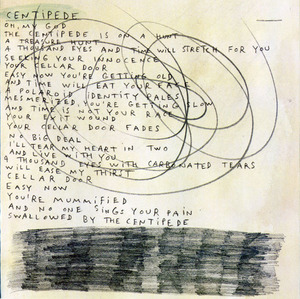 CENTIPEDE
OH, MY GOD
THE CENTIPEDE IS ON A HUNT
A TREASURE HUNT
A THOUSAND EYES AND TIME WILL STRETCH FOR YOU
SEEKING YOUR INNOCENCE
YOUR CELLAR DOOR
EASY NOW YOU'RE GETTING OLD
AND TIME WILL EAT YOUR FACE
A POLAROID IDENTITY CALLS
MESMERIZED YOU'RE GETTING SLOW
AND TIME IS NOT YOUR RACE
YOUR EXIT WOUND
YOUR CELLAR DOOR FADES
NO BIG DEAL
I'LL TEAR MY HEART IN TWO
AND LIVE WITH YOU
A THOUSAND EYES WITH CARBONATED TEARS
WILL EASE MY THIRST
CELLAR DOOR
EASY NOW
YOU'RE MUMMIFIED
AND NO ONE SINGS YOUR PAIN
SWALLOWED BY THE CENTIPEDE